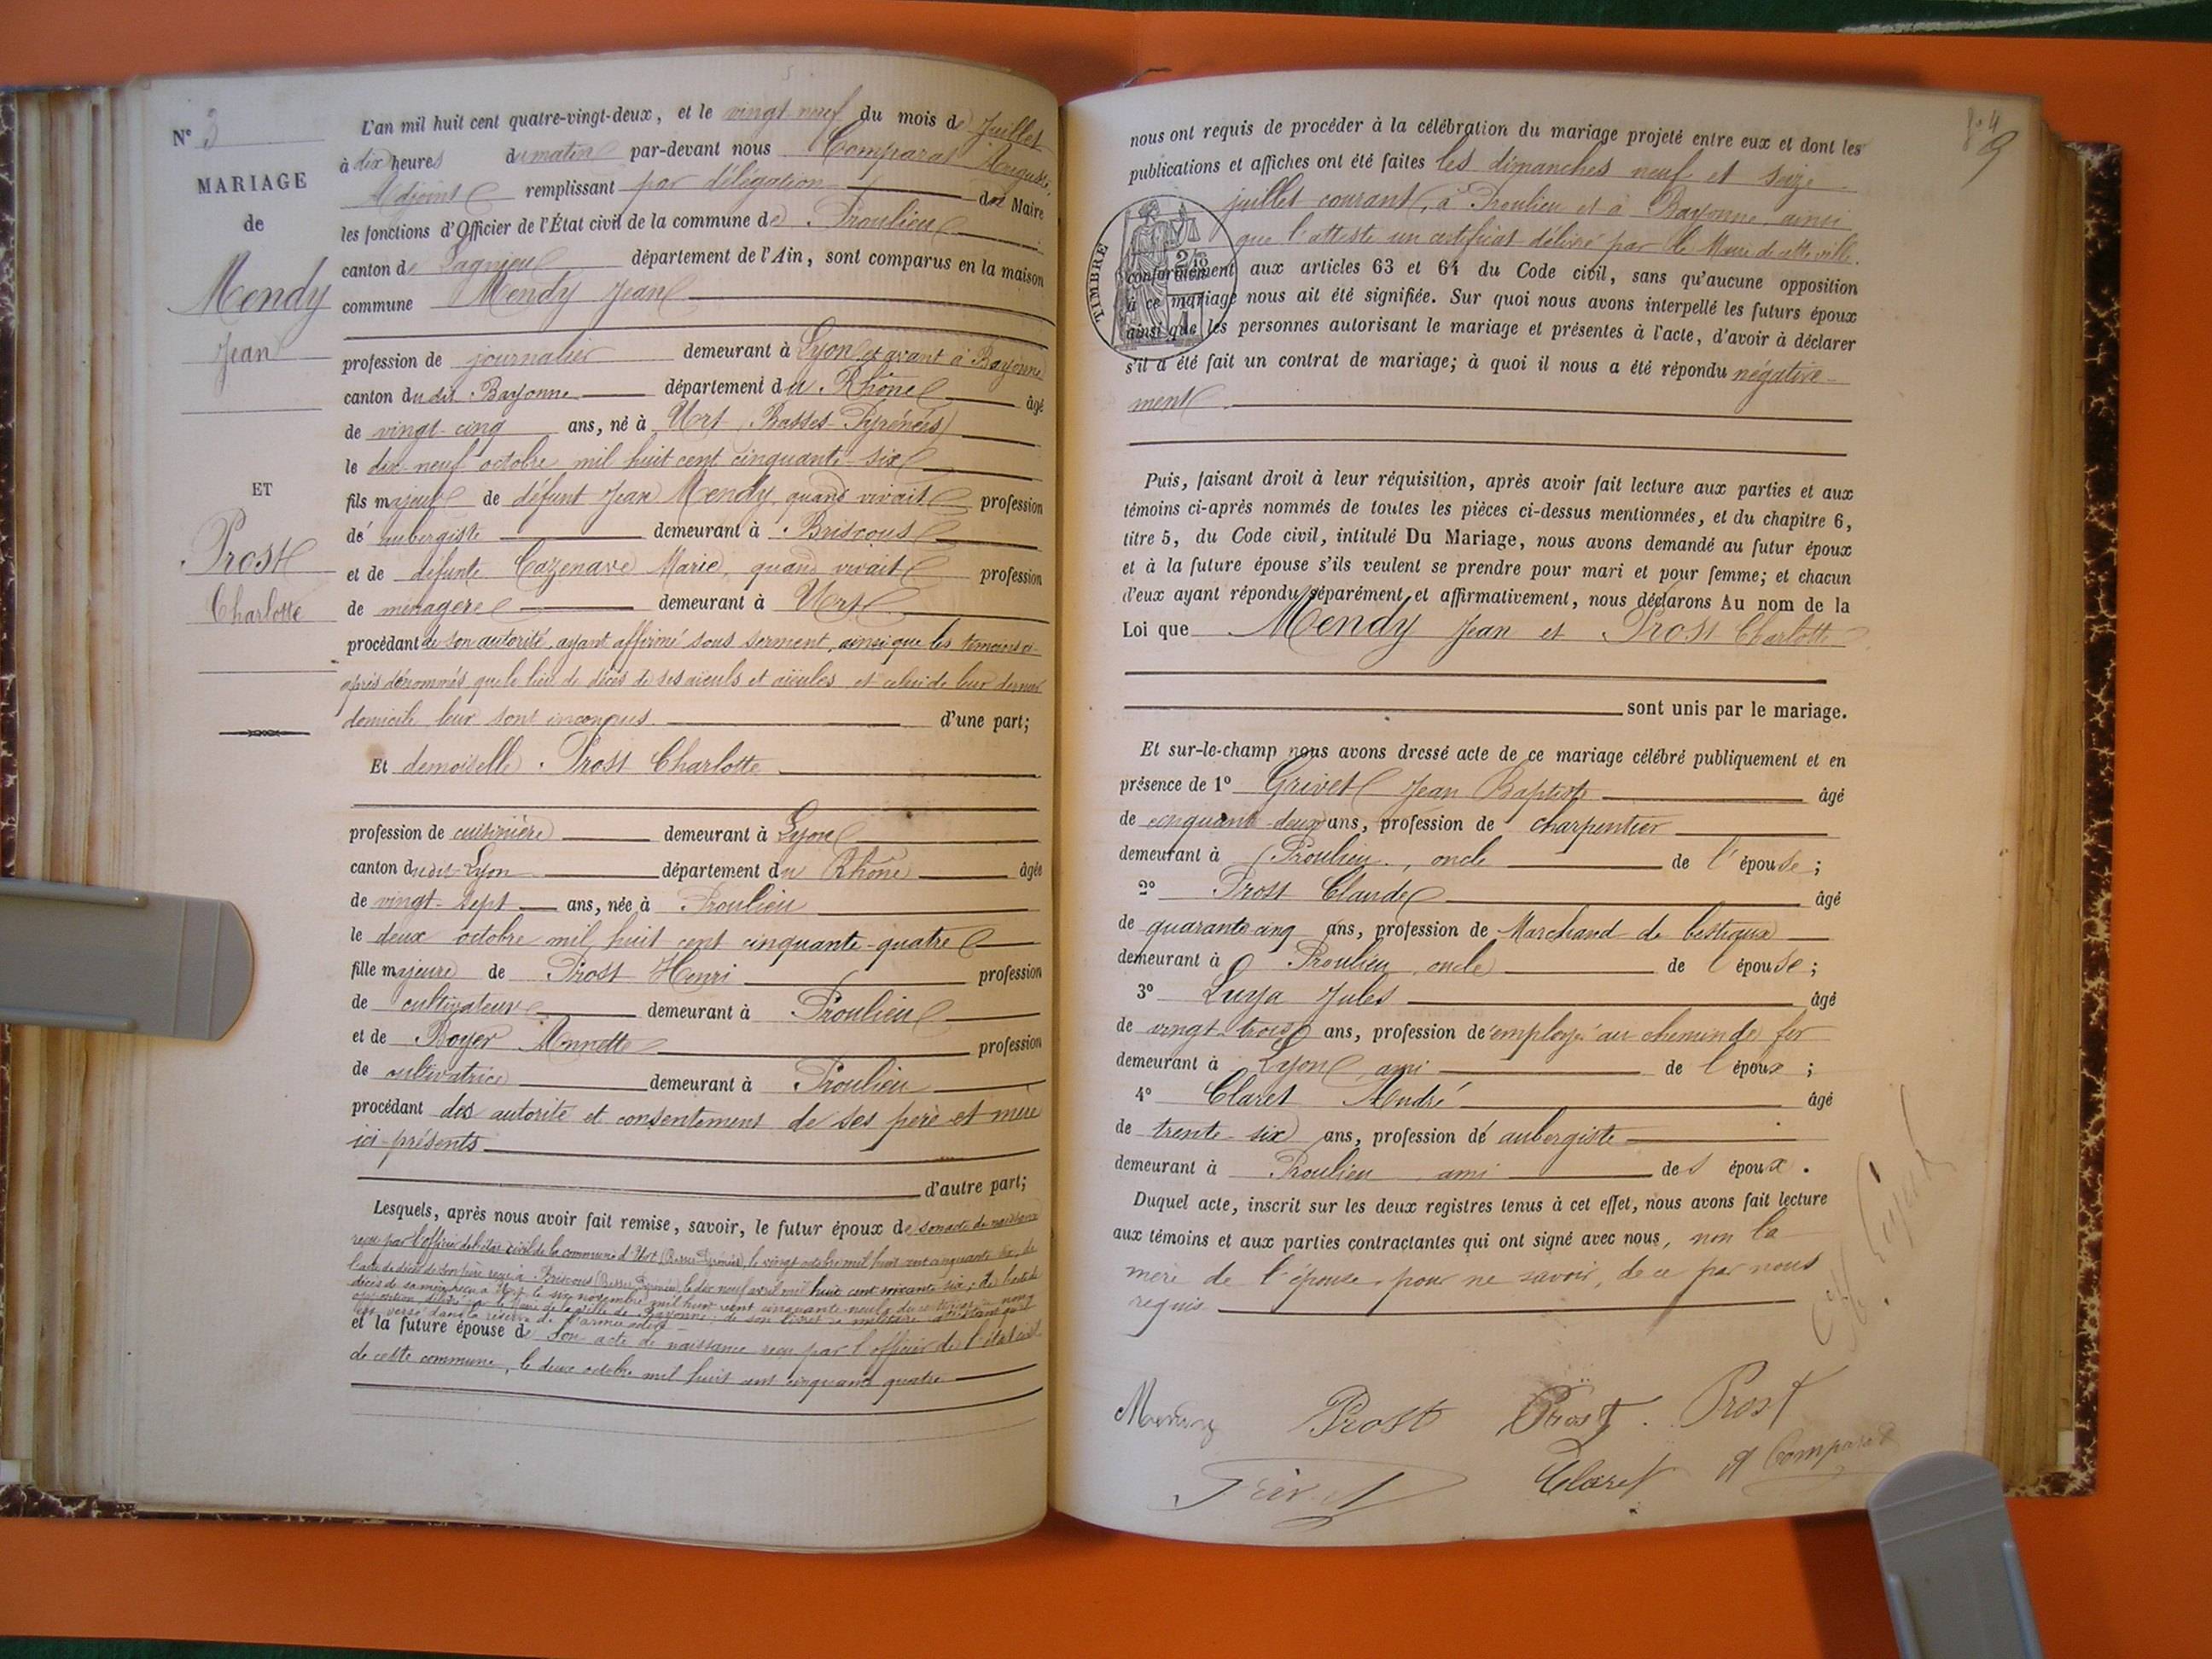 N° 3
MARIAGE
de
Mendy
Jean
ET
Prost
Charlotte
L'an mil huit cent quatre-vingt-deux, et le vingt neuf du mois de Juillet
à dix heures du matin par-devant nous Comparat Auguste,
Adjoint remplissant par délégation du Maire
les fonctions d'Officier de l'État civil de la commune de Proulieu
canton de Lagnieu département de l'Ain, sont comparus en la maison
commune Mendy Jean
profession de journalier demeurant à Lyon et avant à Bayonne
canton du dit Bayonne département du Rhône âgé
de vingt-cinq ans, né à Urt (Basses-Pyrénées)
le dix-neuf octobre mil huit cent cinquante-six
fils majeur de défunt Jean Mendy, quand vivait profession
de aubergiste demeurant à Briscous
et de défunte Cazenave Marie, quand vivait profession
de ménagère demeurant à Urt
procédant de son autorité, ayant affirmé sous serment, ainsi que les témoins ci-
après dénommés que le lieu de décès de ses aïeuls et aïeules et celui de leur dernier
domicile leur sont inconnus d'une part;
Et demoiselle Prost Charlotte
profession de cuisinière demeurant à Lyon
canton dudit Lyon département du Rhône âgée
de vingt-sept ans, née à Proulieu
le deux octobre mil huit cent cinquante-quatre
fille majeure de Prost Henri profession
de cultivateur demeurant à Proulieu
et de Boyer Annette profession
de cultivatrice demeurant à Proulieu
procédant des autorité et consentement de ses père et mère
ici présents
d'autre part;
Lesquels, après nous avoir fait remise, savoir, le futur époux de son acte de naissance
reçu par l'officier de l'état civil de la commune d'Urt (Basses Pyrénées), le vingt octobre mil huit cent cinquante six, de
l'acte de décès de son père reçu à Briscous (Basses Pyrénées) le dix neuf avril mil huit cent soixante six; de l'acte de
décès de sa mère reçu à Urt le six novembre mil huit cent cinquante neuf, du certificat de non
opposition délivré par le Maire de la ville de Bayonne; de son livret militaire constatant qu'il
est versé dans la réserve de l'armée active
et la future épouse de son acte de naissance reçu par l'officier de l'état civil
de cette commune, le deux octobre mil huit cent cinquante quatre
9
nous ont requis de procéder à la célébration du mariage projeté entre eux et dont les
publications et affiches ont été faites les dimanches neuf et seize
juillet courant, à Proulieu et à Bayonne, ainsi
que l'atteste un certificat délivré par le Maire de cette ville.
TIMBRE
conformément aux articles 63 et 64 du Code civil, sans qu'aucune opposition
à ce mariage nous ait été signifiée. Sur quoi nous avons interpellé les futurs époux
ainsi que les personnes autorisant le mariage et présentes à l'acte, d'avoir à déclarer
s'il a été fait un contrat de mariage; à quoi il nous a été répondu négative-
ment
Puis, faisant droit à leur réquisition, après avoir fait lecture aux parties et aux
témoins ci-après nommés de toutes les pièces ci-dessus mentionnées, et du chapitre 6,
titre 5, du Code civil, intitulé Du Mariage, nous avons demandé au futur époux
et à la future épouse s'ils veulent se prendre pour mari et pour femme; et chacun
d'eux ayant répondu séparément et affirmativement, nous déclarons Au nom de la
Loi que Mendy Jean et Prost Charlotte
sont unis par le mariage.
Et sur-le-champ nous avons dressé acte de ce mariage célébré publiquement et en
présence de 1° Grivet Jean Baptiste âgé
de cinquante-deux ans, profession de charpentier
demeurant à Proulieu, oncle de l'épouse;
2° Prost Claude âgé
de quarante-cinq ans, profession de Marchand de bestiaux
demeurant à Proulieu, oncle de l'épouse;
3° Luya Jules âgé
de vingt-trois ans, profession de employé au chemin de fer
demeurant à Lyon, ami de l'époux;
4° Claret André âgé
de trente-six ans, profession de aubergiste
demeurant à Proulieu ami des époux.
Duquel acte, inscrit sur les deux registres tenus à cet effet, nous avons fait lecture
aux témoins et aux parties contractantes qui ont signé avec nous, non la
mère de l'épouse, pour ne savoir, de ce par nous
requis
Mendy Prost Prost Prost
Claret A Comparat